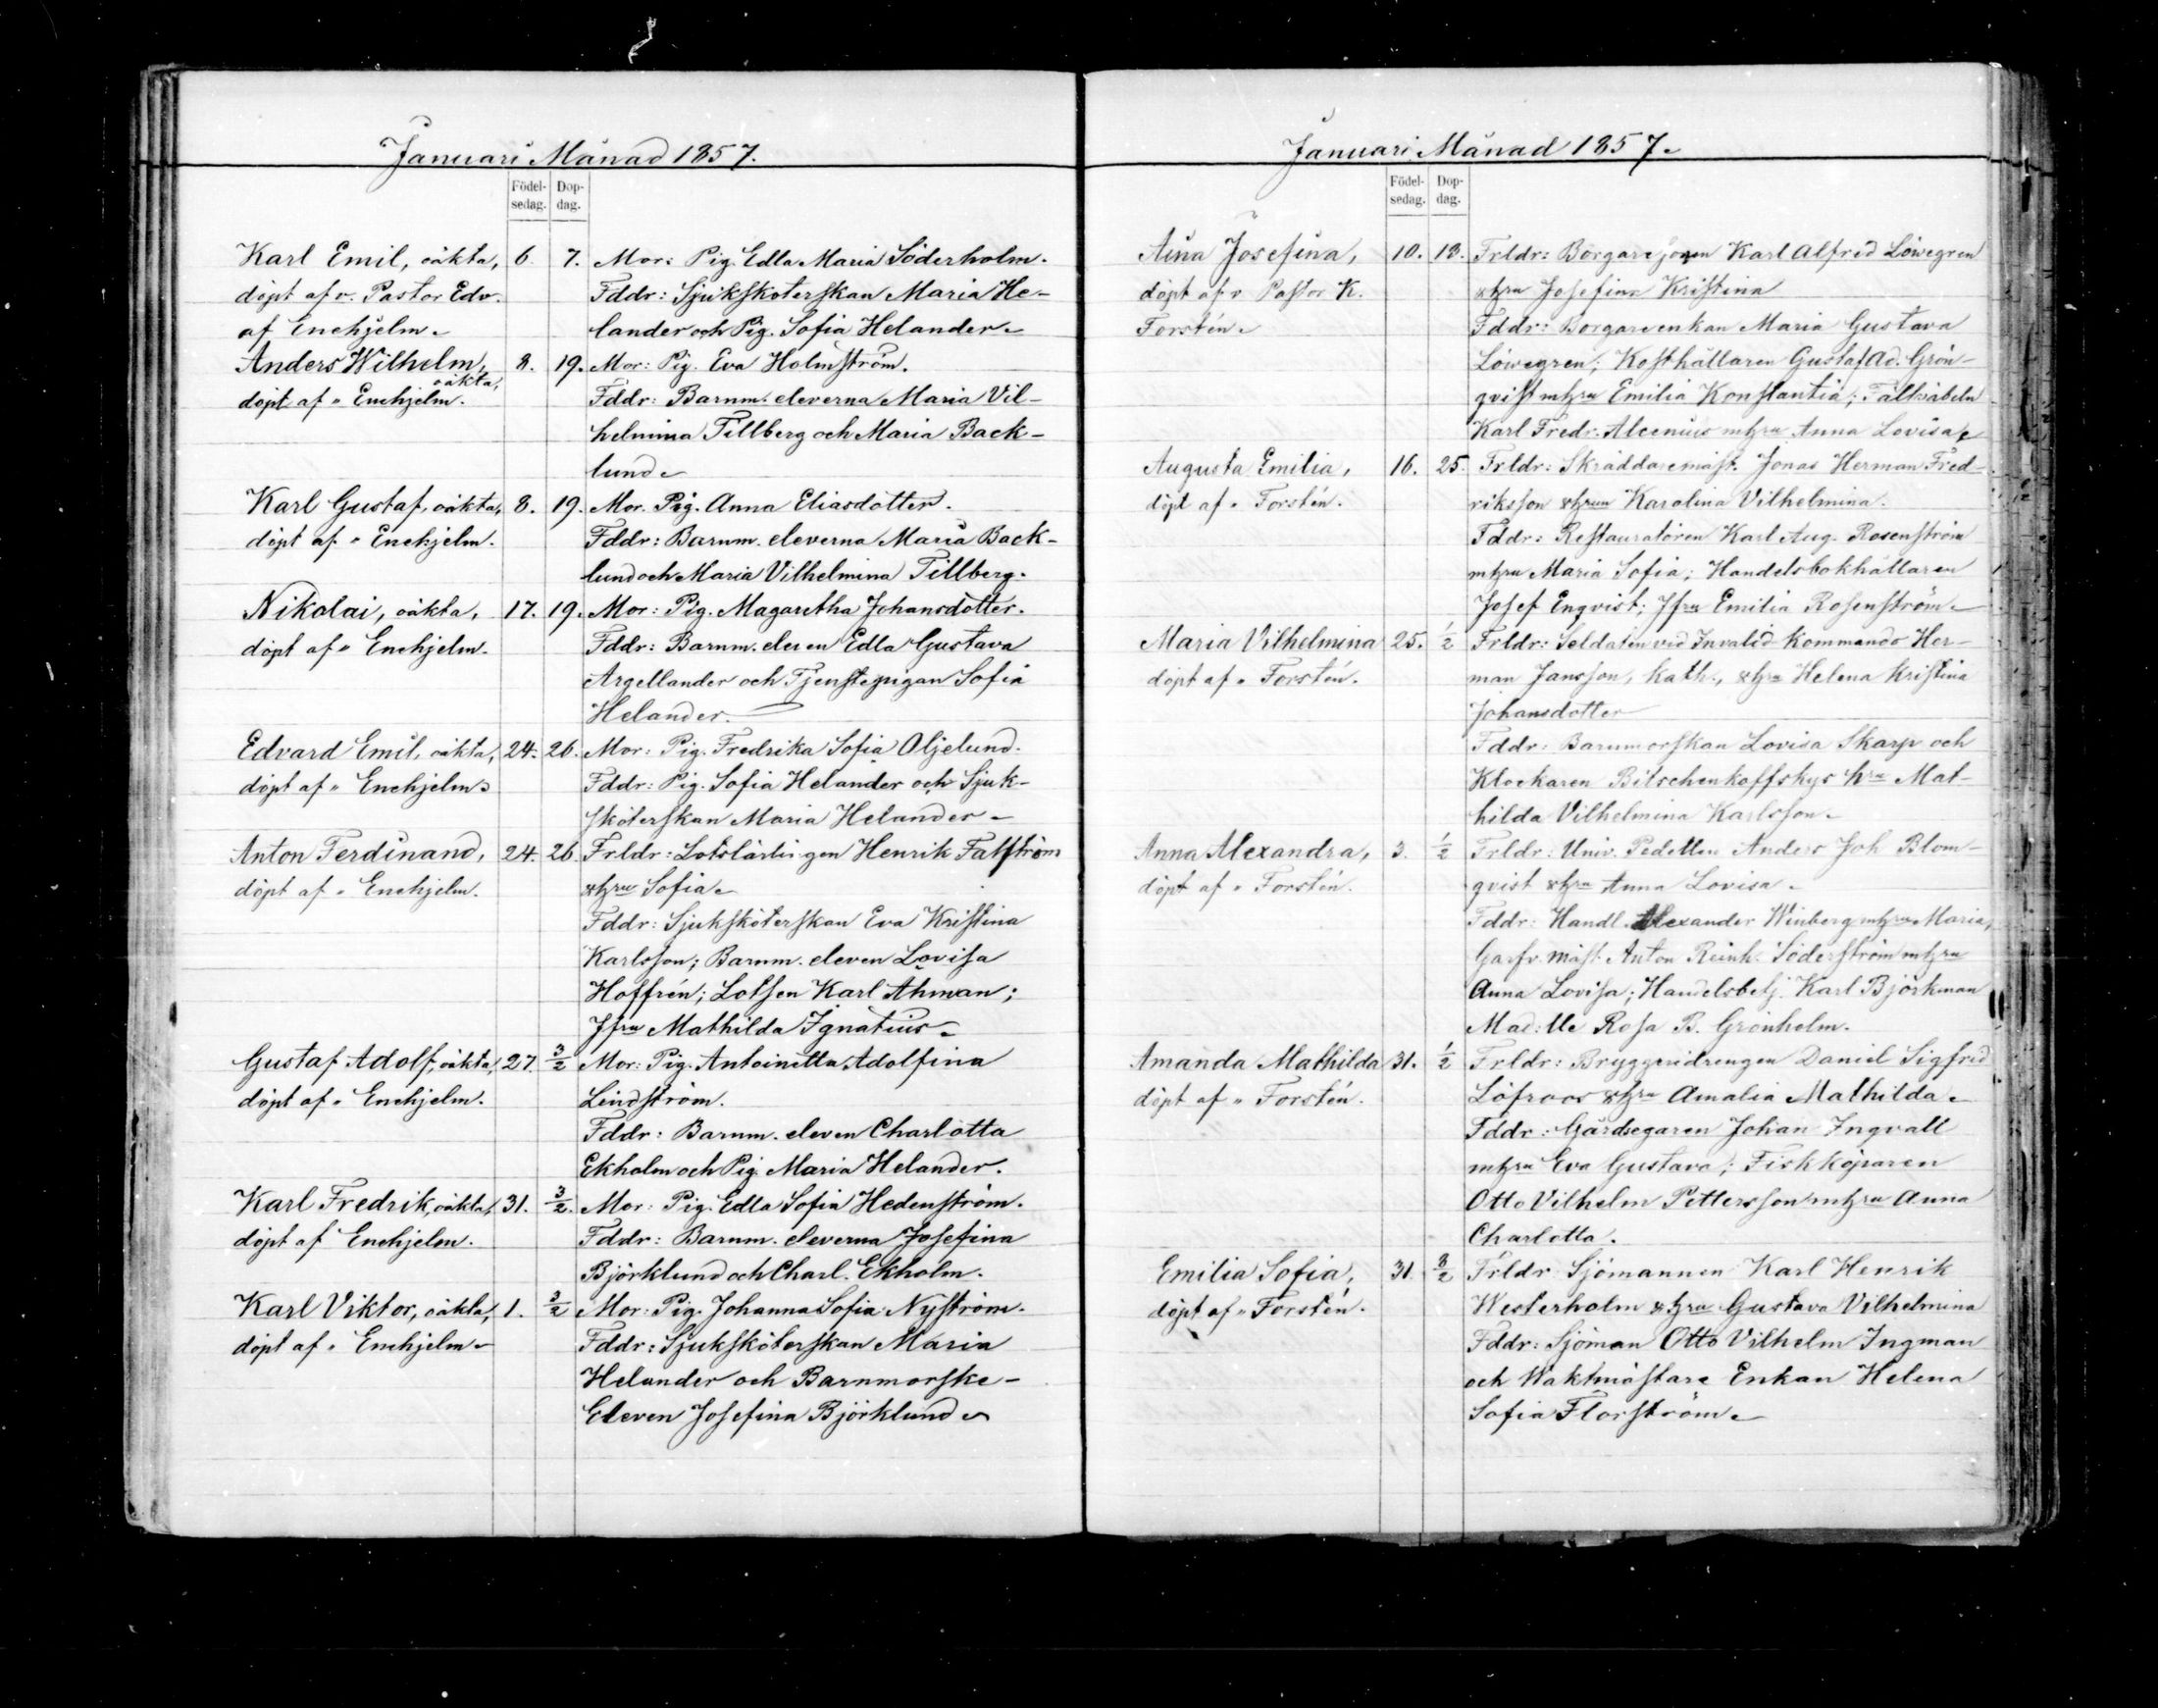 Januari Månad 1857.
Födel-sedag. Dop-dag.
Karl Emil, oäkta, 6. 7. Mor: Pig. Edla Maria Söderholm.
döpt af v. Pastor Edv. Fddr: Sjuksköterskan Maria He-
af Enehjelm. lander och Pig. Sofia Helander.
Anders Wilhelm, 8. 19. Mor: Pig. Eva Holmström.
oäkta,
döpt af " Enehjelm. Fddr: Barnm. eleverna Maria Vil-
helmina Tillberg och Maria Back-
lund.
Karl Gustaf, oäkta, 8. 19. Mor. Pig. Anna Eliasdotter.
döpt af " Enehjelm. Fddr: Barnm. eleverna Maria Back-
lund och Maria Vilhelmina Tillberg.
Nikolai, oäkta, 17. 19. Mor: Pig. Magaretha Johansdotter.
döpt af " Enehjelm. Fddr: Barnm. eleven Edla Gustava
Argellander och Tjenstepigan Sofia
Helander.
Edvard Emil, oäkta, 24. 26. Mor: Pig. Fredrika Sofia Oljelund.
döpt af " Enehjelm. Fddr: Pig. Sofia Helander och Sjuk-
sköterskan Maria Helander.
Anton Ferdinand, 24. 26. Frldr: Lotslärlingen Henrik Falström
döpt af " Enehjelm. & hru Sofia.
Fddr: Sjuksköterskan Eva Kristina
Karlsson; Barnm. eleven Lovisa
Hoffrén; Lotsen Karl Åhman;
Jfru Mathilda Ignatius.
Gustaf Adolf, oäkta, 27. 3/2 Mor: Pig. Antoinetta Adolfina
döpt af " Enehjelm. Lindström.
Fddr: Barnm. eleven Charlotta
Ekholm och Pig. Maria Helander.
Karl Fredrik, oäkta, 31. 3/2. Mor: Pig. Edla Sofia Hedenström.
döpt af Enehjelm. Fddr: Barnm. eleverna Josefina
Björklund och Charl. Ekholm.
Karl Viktor, oäkta, 1. 3/2 Mor: Pig. Johanna Sofia Nyström.
döpt af " Enehjelm. Fddr: Sjuksköterskan Maria
Helander och Barnmorske-
Eleven Josefina Björklund.
Januari Månad 1857.
Födel-sedag. Dop-dag.
Aina Josefina, 10. 18. Frldr: Borgaresonen Karl Alfred Löwegren
döpt af v Pastor K. & hru Josefina Kristina
Forstén. Fddr: Borgareenkan Maria Gustava
Löwegren; Kosthållaren Gustaf Ad. Grön-
qvist m hru Emilia Konstantia; Fältväbeln
Karl Fredr. Alcenius m hru Anna Lovisa.
Augusta Emilia, 16. 25. Frldr: Skräddaremäst. Jonas Herman Fred-
döpt af " Forstén. riksson & hrun Karolina Vilhelmina.
Fddr: Restauratören Karl Aug. Rosenström
m hru Maria Sofia; Handelsbokhållaren
Josef Enqvist; Jfru Emilia Rosenström.
Maria Vilhelmina 25. 1/2 Frldr: Soldaten vid Invalid Kommando Her-
döpt af " Forstén. man Jansson, Kath., & hru Helena Kristina
Johansdotter
Fddr: Barnmorskan Lovisa Skarp och
Klockaren Bitschenkoffskys hru Mat-
hilda Vilhelmina Karlsson.
Anna Alexandra, 3. 1/2 Frldr: Univ. Pedellen Anders Joh Blom-
döpt af " Forstén. qvist & hru Anna Lovisa.
Fddr: Handl. Alexander Winberg m hru Maria,
Garfv. mäst. Anton Reinh. Söderström m hru
Anna Lovisa; Handelsbetj. Karl Björkman
Mad:lle Rosa B. Grönholm.
Amanda Mathilda 31. 1/2 Frldr: Bryggeridrengen Daniel Sigfrid
döpt af " Forstén. Löfroos & hru Amalia Mathilda.
Fddr: Gårdsegaren Johan Ingvall
m hru Eva Gustava; Fiskköparen
Otto Vilhelm Pettersson m hru Anna
Charlotta.
Emilia Sofia, 31. 8/2 Frldr Sjömannen Karl Henrik
döpt af " Forstén. Westerholm & hru Gustava Vilhelmina
Fddr: Sjöman Otto Vilhelm Ingman
och Waktmästare Enkan Helena
Sofia Florström.